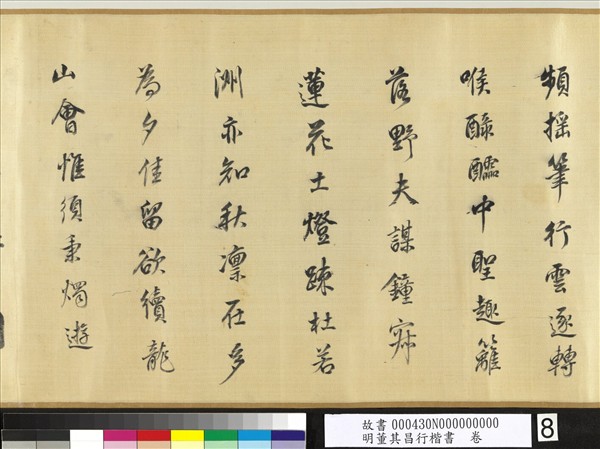 頻揺筆行雲逐轉
喉醁醽中聖趣籬
落野夫謀鐘寂
蓮花土燈疎杜若
洲亦知秋凛在多
為夕佳留欲續龍
山會惟須秉燭遊
故書 000430N000000000
明董其昌行楷書 卷
8